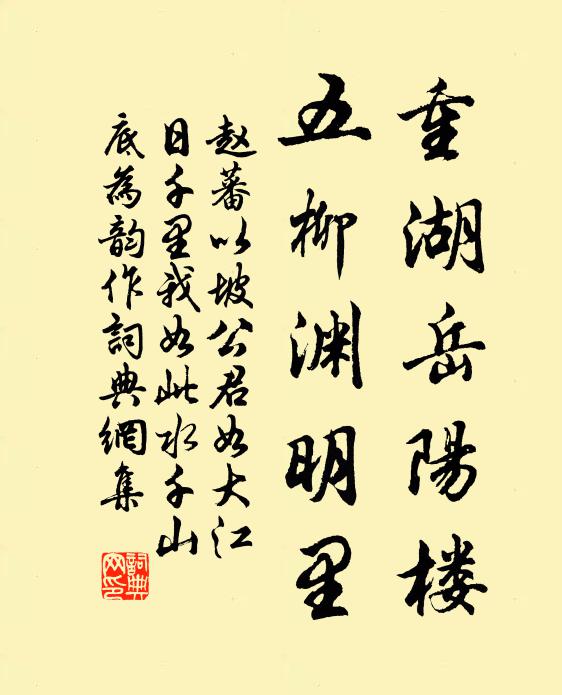 重湖岳陽楼
五柳渊明里
赵蕃以坡公君如大江
日千里我如此水千山
底為韵作詞典網集
詞典网印